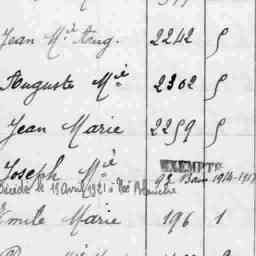 Jean Mie Aug. 2242 5
Auguste Mie 2302 5
Jean Marie 2259 5
Joseph Mie EXEMPTÉ
Décédé le 19 Avril 1921 à 92 Bon 1914-1917
Emile Marie 196 1